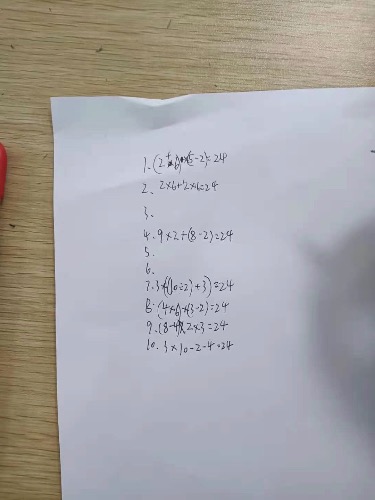 1. (2+6)×(5-2)=24
2. 2×6+2×6=24
3.
4. 9×2÷(8-2)=24
5.
6.
7. 3×((10÷2)+3)=24
8. (4×6)÷(3-2)=24
9. (8-4)×2×3=24
10. 3×10-2-4=24